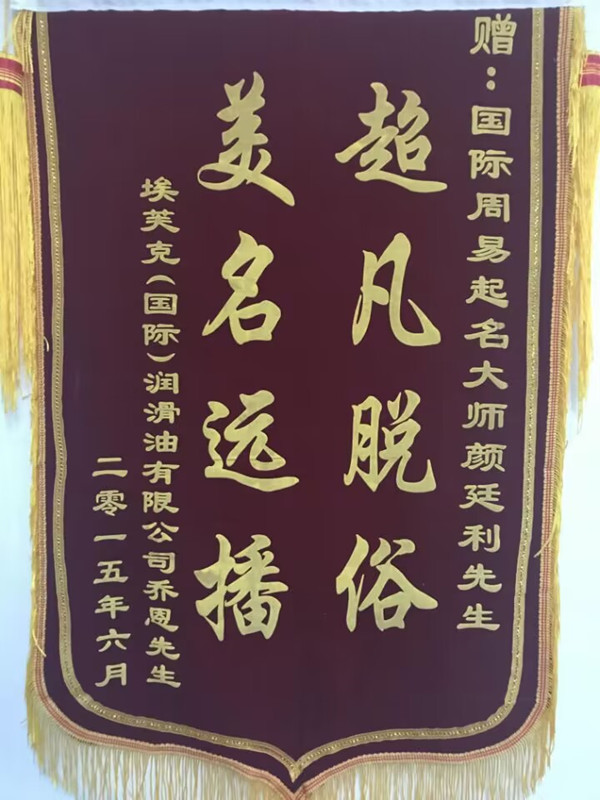 赠：国际周易起名大师颜廷利先生
超凡脱俗
美名远播
埃芙克（国际）润滑油有限公司乔恩先生
二零一五年六月